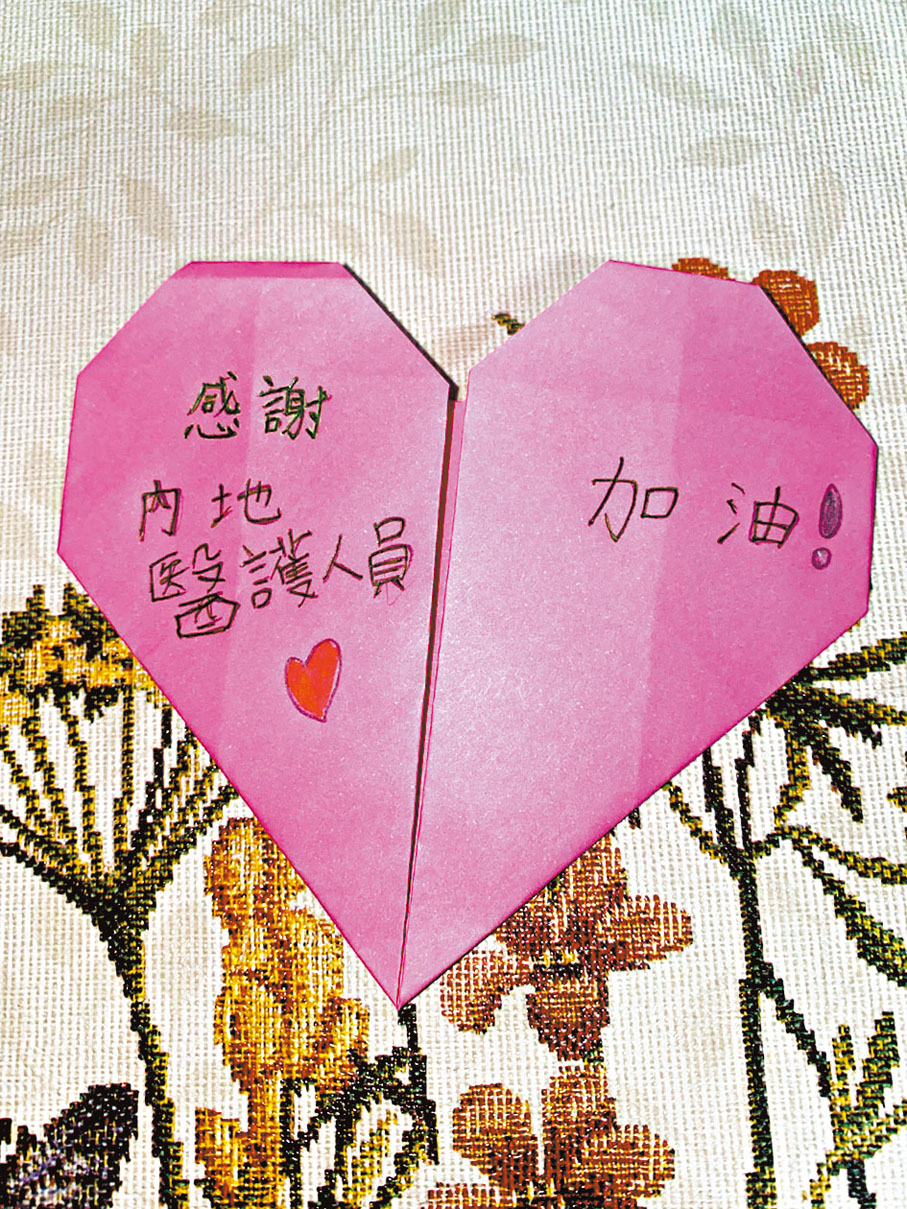 感謝
內地
醫護人員
加油！